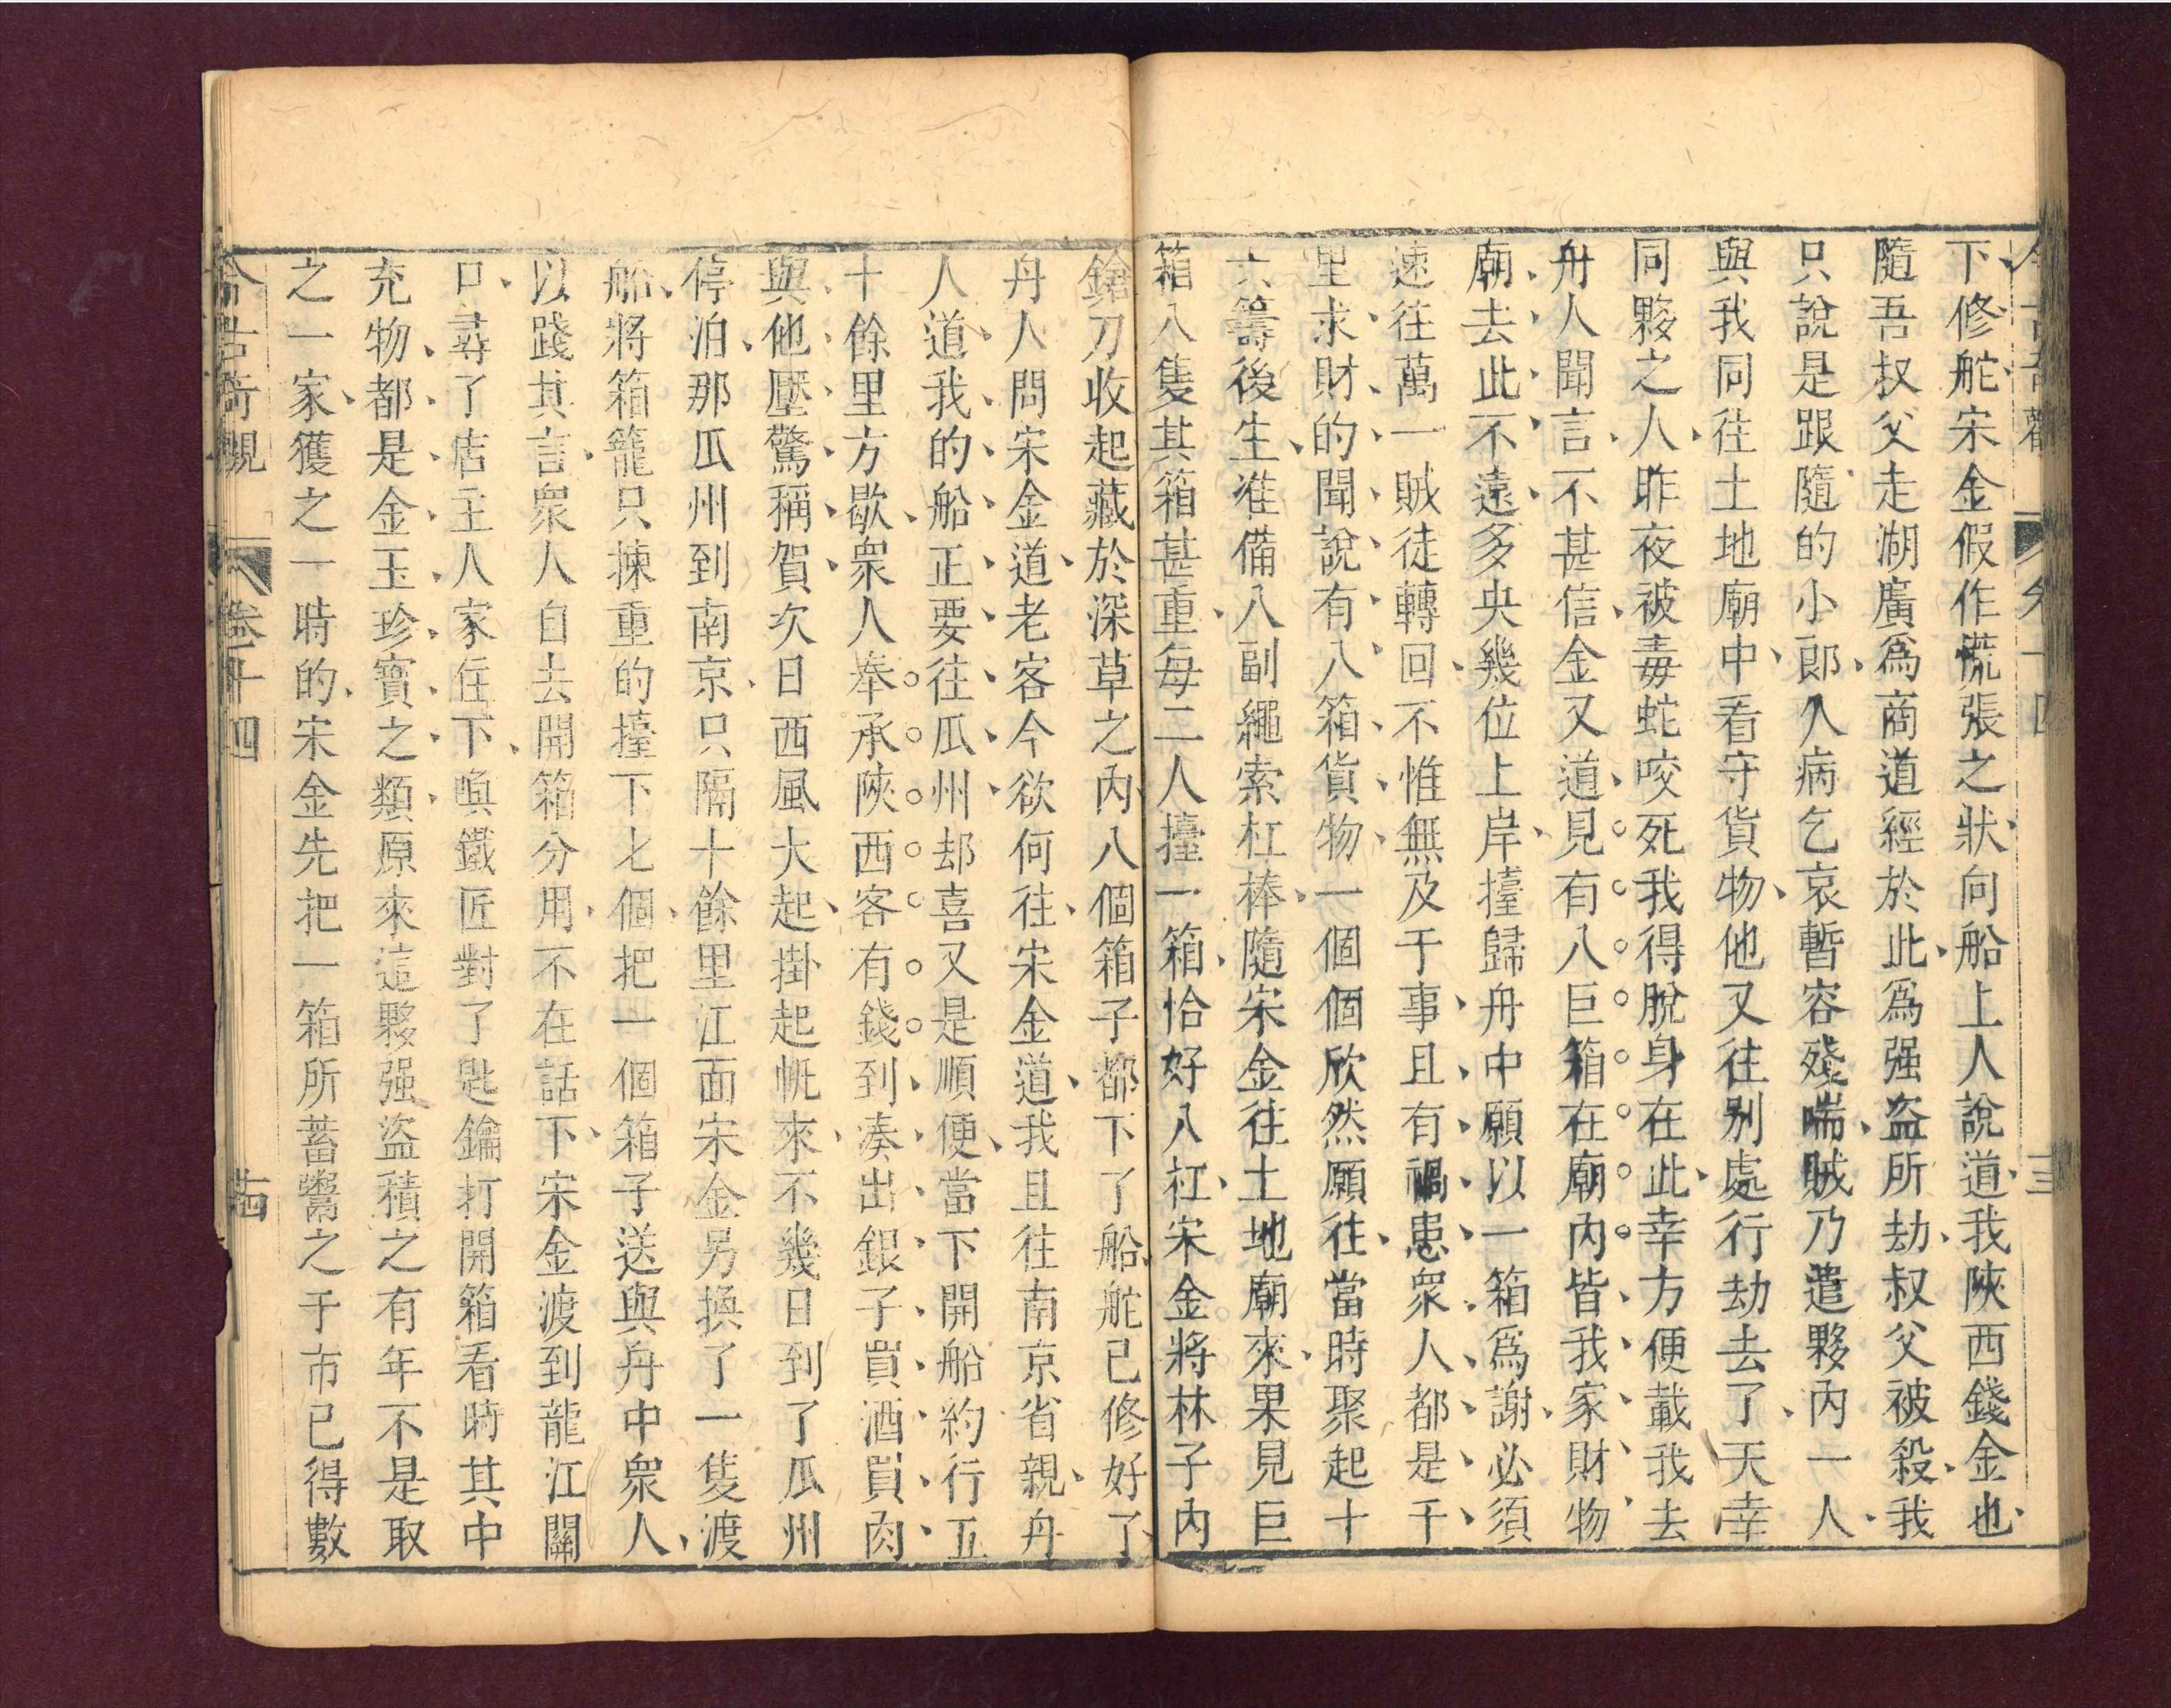 下修舵宋金假作慌張之狀向船上人說道我陝西錢金也
隨吾叔父走湖廣爲商道經於此爲强盜所劫叔父被殺我
只說是跟隨的小郎久病乞哀暫容殘喘賊乃遣夥內一人
與我同往土地廟中看守貨物他又往别處行劫去了天幸
同夥之人昨夜被毒蛇咬死我得脫身在此幸方便載我去
舟人聞言不甚信金又道見有八巨箱在廟內皆我家財物
廟去此不遠多央幾位上岸擡歸舟中願以一箱爲謝必須
速往萬一賊徒轉回不惟無及于事且有禍患衆人都是千
里求財的聞說有八箱貨物一個個欣然願往當時聚起十
六籌後生准備八副繩索杠棒隨宋金往土地廟來果見巨
箱八隻其箱甚重每二人擡一箱恰好八杠宋金將林子內
鎗刀收起藏於深草之內八個箱子都下了船舵已修好了
舟人問宋金道老客今欲何往宋金道我且往南京省親舟
人道我的船正要往瓜州却喜又是順便當下開船約行五
十餘里方歇衆人奉承陝西客有錢到湊出銀子買酒買肉
與他壓驚稱賀次日西風大起掛起帆來不幾日到了瓜州
停泊那瓜州到南京只隔十餘里江面宋金另換了一隻渡
船將箱籠只揀重的擡下七個把一個箱子送與舟中衆人
以踐其言衆人自去開箱分用不在話下宋金渡到龍江關
口尋了店主人家住下喚鐵匠對了匙鑰打開箱看時其中
充物都是金玉珍寶之類原來這夥强盜積之有年不是取
之一家獲之一時的宋金先把一箱所蓄鬻之于市已得數
今古奇觀 卷十四 十四